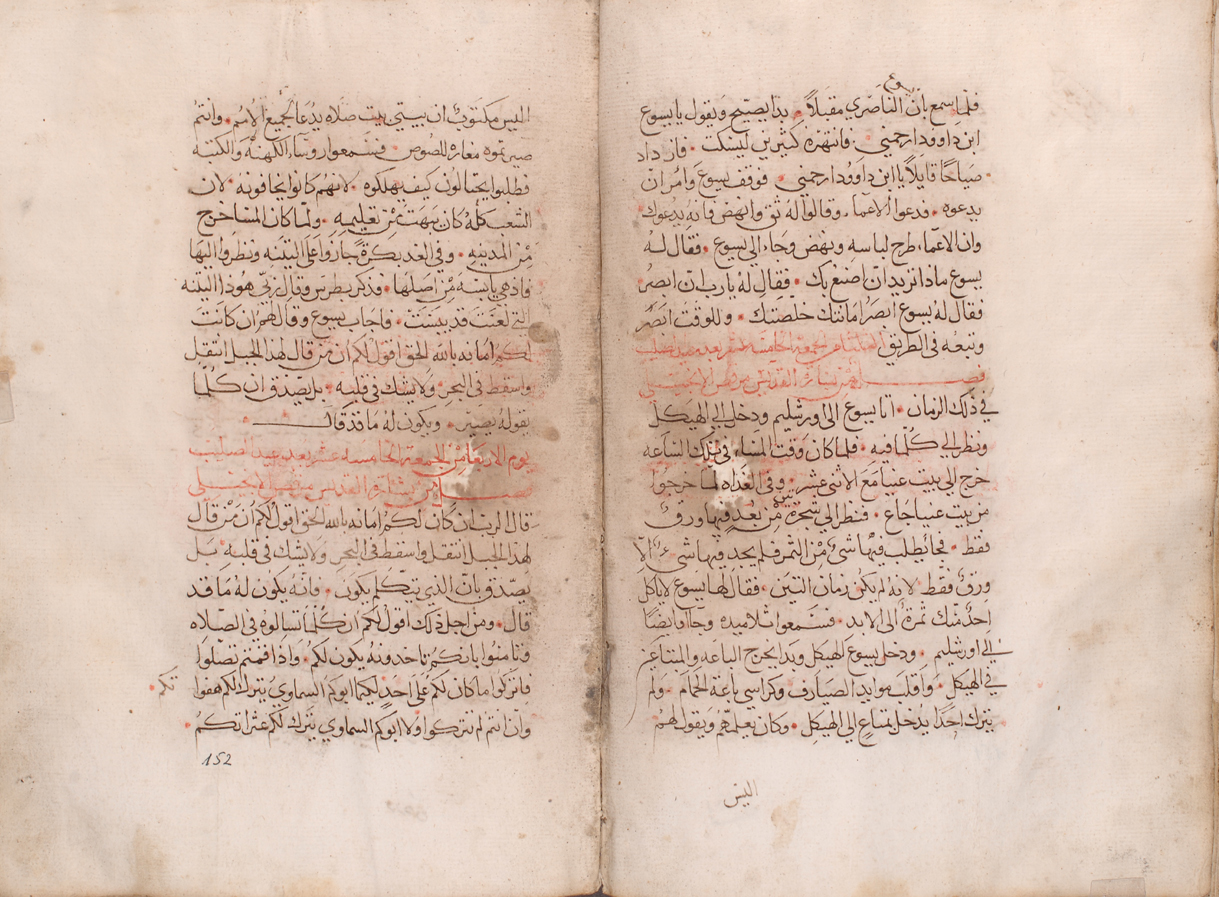 فلما سمع بان الناصري مقبلاً • بدا يصيح ويقول يا يسوع
ابن داوود ارحمني • فانتهزه كثيرين ليسكت • فازداد
صياحًا قايلاً يا ابن داوود ارحمني • فوقف يسوع وامر ان
يدعوه • فدعوا الاعما • وقالوا له ثق وانهض فانه يدعوك
وان الاعما طرح لباسه ونهض وجاء الي يسوع • فقال له
يسوع ماذا تريد ان اصنع بك • فقال له يارب ان ابصر
فقال له يسوع ابصر امانتك خلصتك • وللوقت ابصر
وتبعه في الطريق الجمعة الخامسة عشر بعد عيد الصليب
فصل من بشارة القديس مرقص الانجيلي
في ذلك الزمان • اتا يسوع الى اورشليم ودخل الي الهيكل
ونظر الي كلما فيه • فلما كان وقت المساء في تلك الساعه
خرج الي بيت عنيا مع الاثنى عشر • وفي الغداه لما خرجوا
من بيت عنيا جاع • فنظر الي شجرة تين من بعد فيها ورق
فقط • فجا يطلب فيها شئ من الثمر فلم يجد فيها شئ الا
ورق فقط • لانه لم يكن زمان التين • فقال لها يسوع لا ياكل
احد منك ثمرة الى الابد • فسمعوا تلاميده وجاا ايضا
الي اورشليم • ودخل يسوع الهيكل وبدا يخرج الباعه والمبتاعين
في الهيكل • واقلب موايد الصيارف وكراسي باعة الحمام • ولم
يترك احدا يدخل بمتاع الي الهيكل • وكان يعلمهم ويقول لهم
اليس
اليس مكتوب ان بيتي بيت صلاه يدعا لجميع الامم • وانتم
صيرتموه مغاره للصوص • فسمعوا روساء الكهنه والكتبه
فطلبوا يحتالون كيف يهلكوه • لانهم كانوا يخافونه • لان
الشعب كله كان يبهت من تعليمه • ولما كان المسا خرج
من المدينه • وفي الغد بكرة جازوا على التينه ونظروا اليها
واذ هي يابسه من اصلها • فذكر بطرس وقال ربي هوذا التينه
التي لعنت قد يبست • فاجاب يسوع وقال لهم ان كانت
لكم امانه بالله الحق اقول لكم ان من قال لهذا الجبل انتقل
واسقط في البحر ولا يشك في قلبه • بل يصدق ان كلما
يقوله يصير • ويكون له ما قد قال
يوم الاربعا من الجمعة الخامسه عشر بعد عيد الصليب
فصل من بشارة القديس مرقص الانجيلي
قال الرب ان كان لكم امانه بالله الحق اقول لكم ان من قال
لهذا الجبل انتقل واسقط في البحر ولا يشك في قلبه • بل
يصدق بان الذي يتكلم يكون • فانه يكون له ما قد
قال • ومن اجل ذلك اقول لكم ان كلما تسالوه في الصلاه
وتامنوا بانكم تاخدونه يكون لكم • واذا قمتم تصلوا
فاتركوا ما كان لكم على احد لكيما ابوكم السماوي يترك لكم هفواتكم •
وان انتم لم تتركوا ولا ابوكم السماوي يترك لكم عثراتكم •
152